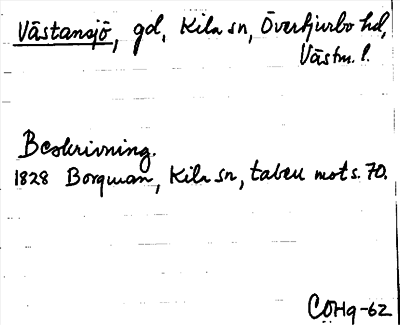 Västansjö, gd, Kila sn, Övertjurbo hd,
Västm. l.
Beskrivning.
1828 Borgman, Kila sn, tabell mot s. 70.
COHq-62